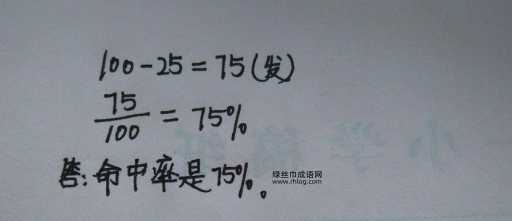 100-25=75(发)
75/100=75%
答:命中率是75%。
绿丝巾成语网
www.rhlog.com